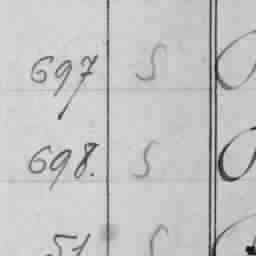 697 S
698. S
51 S